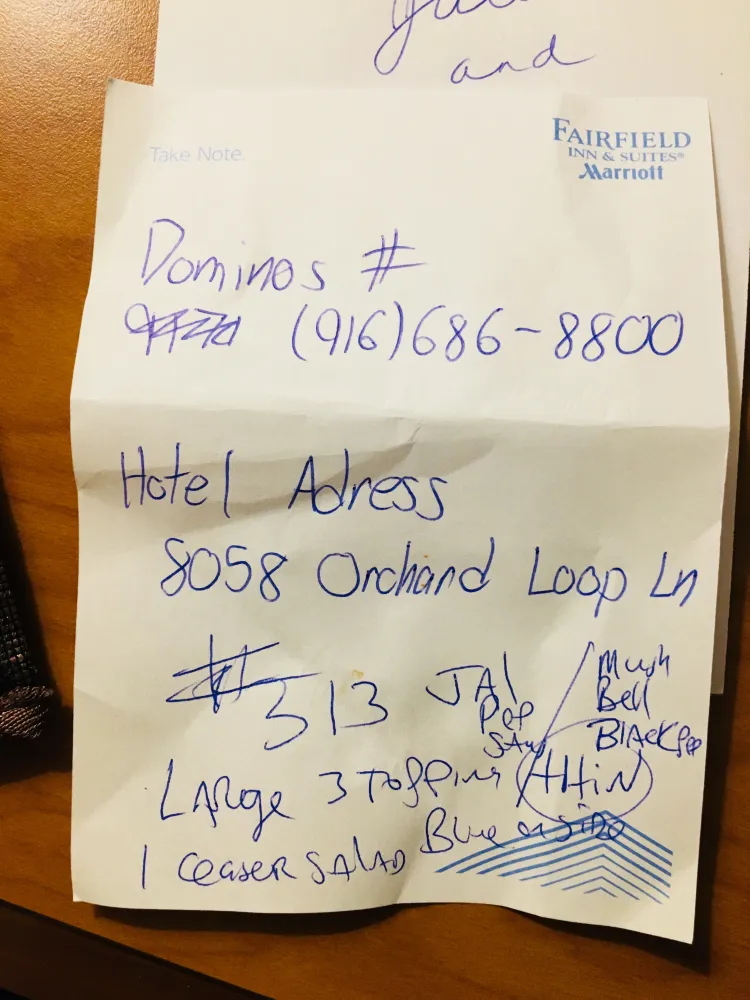 and
Take Note.
FAIRFIELD
INN & SUITES®
Marriott
Dominos #
(916)686-8800
Hotel Adress
8058 Orchard Loop Ln
# 313
JAl
Pep
SAW
Mush
Bell
Black Pep
Large 3 Topping THiN
1 Ceaser SALAD Blue on side